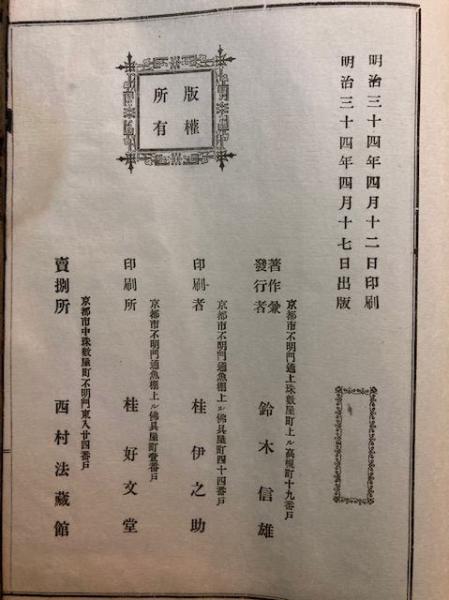 明治三十四年四月十二日印刷
明治三十四年四月十七日出版
版權
所有
京都市不明門通上珠數屋町上ル高槻町十九番戸
著作兼
發行者
鈴木信雄
京都市不明門通魚棚上ル佛具屋町四十四番戸
印刷者
桂伊之助
京都市不明門通魚棚上ル佛具屋町壹番戸
印刷所
桂好文堂
京都市中珠數屋町不明門東入廿四番戸
賣捌所
西村法藏館